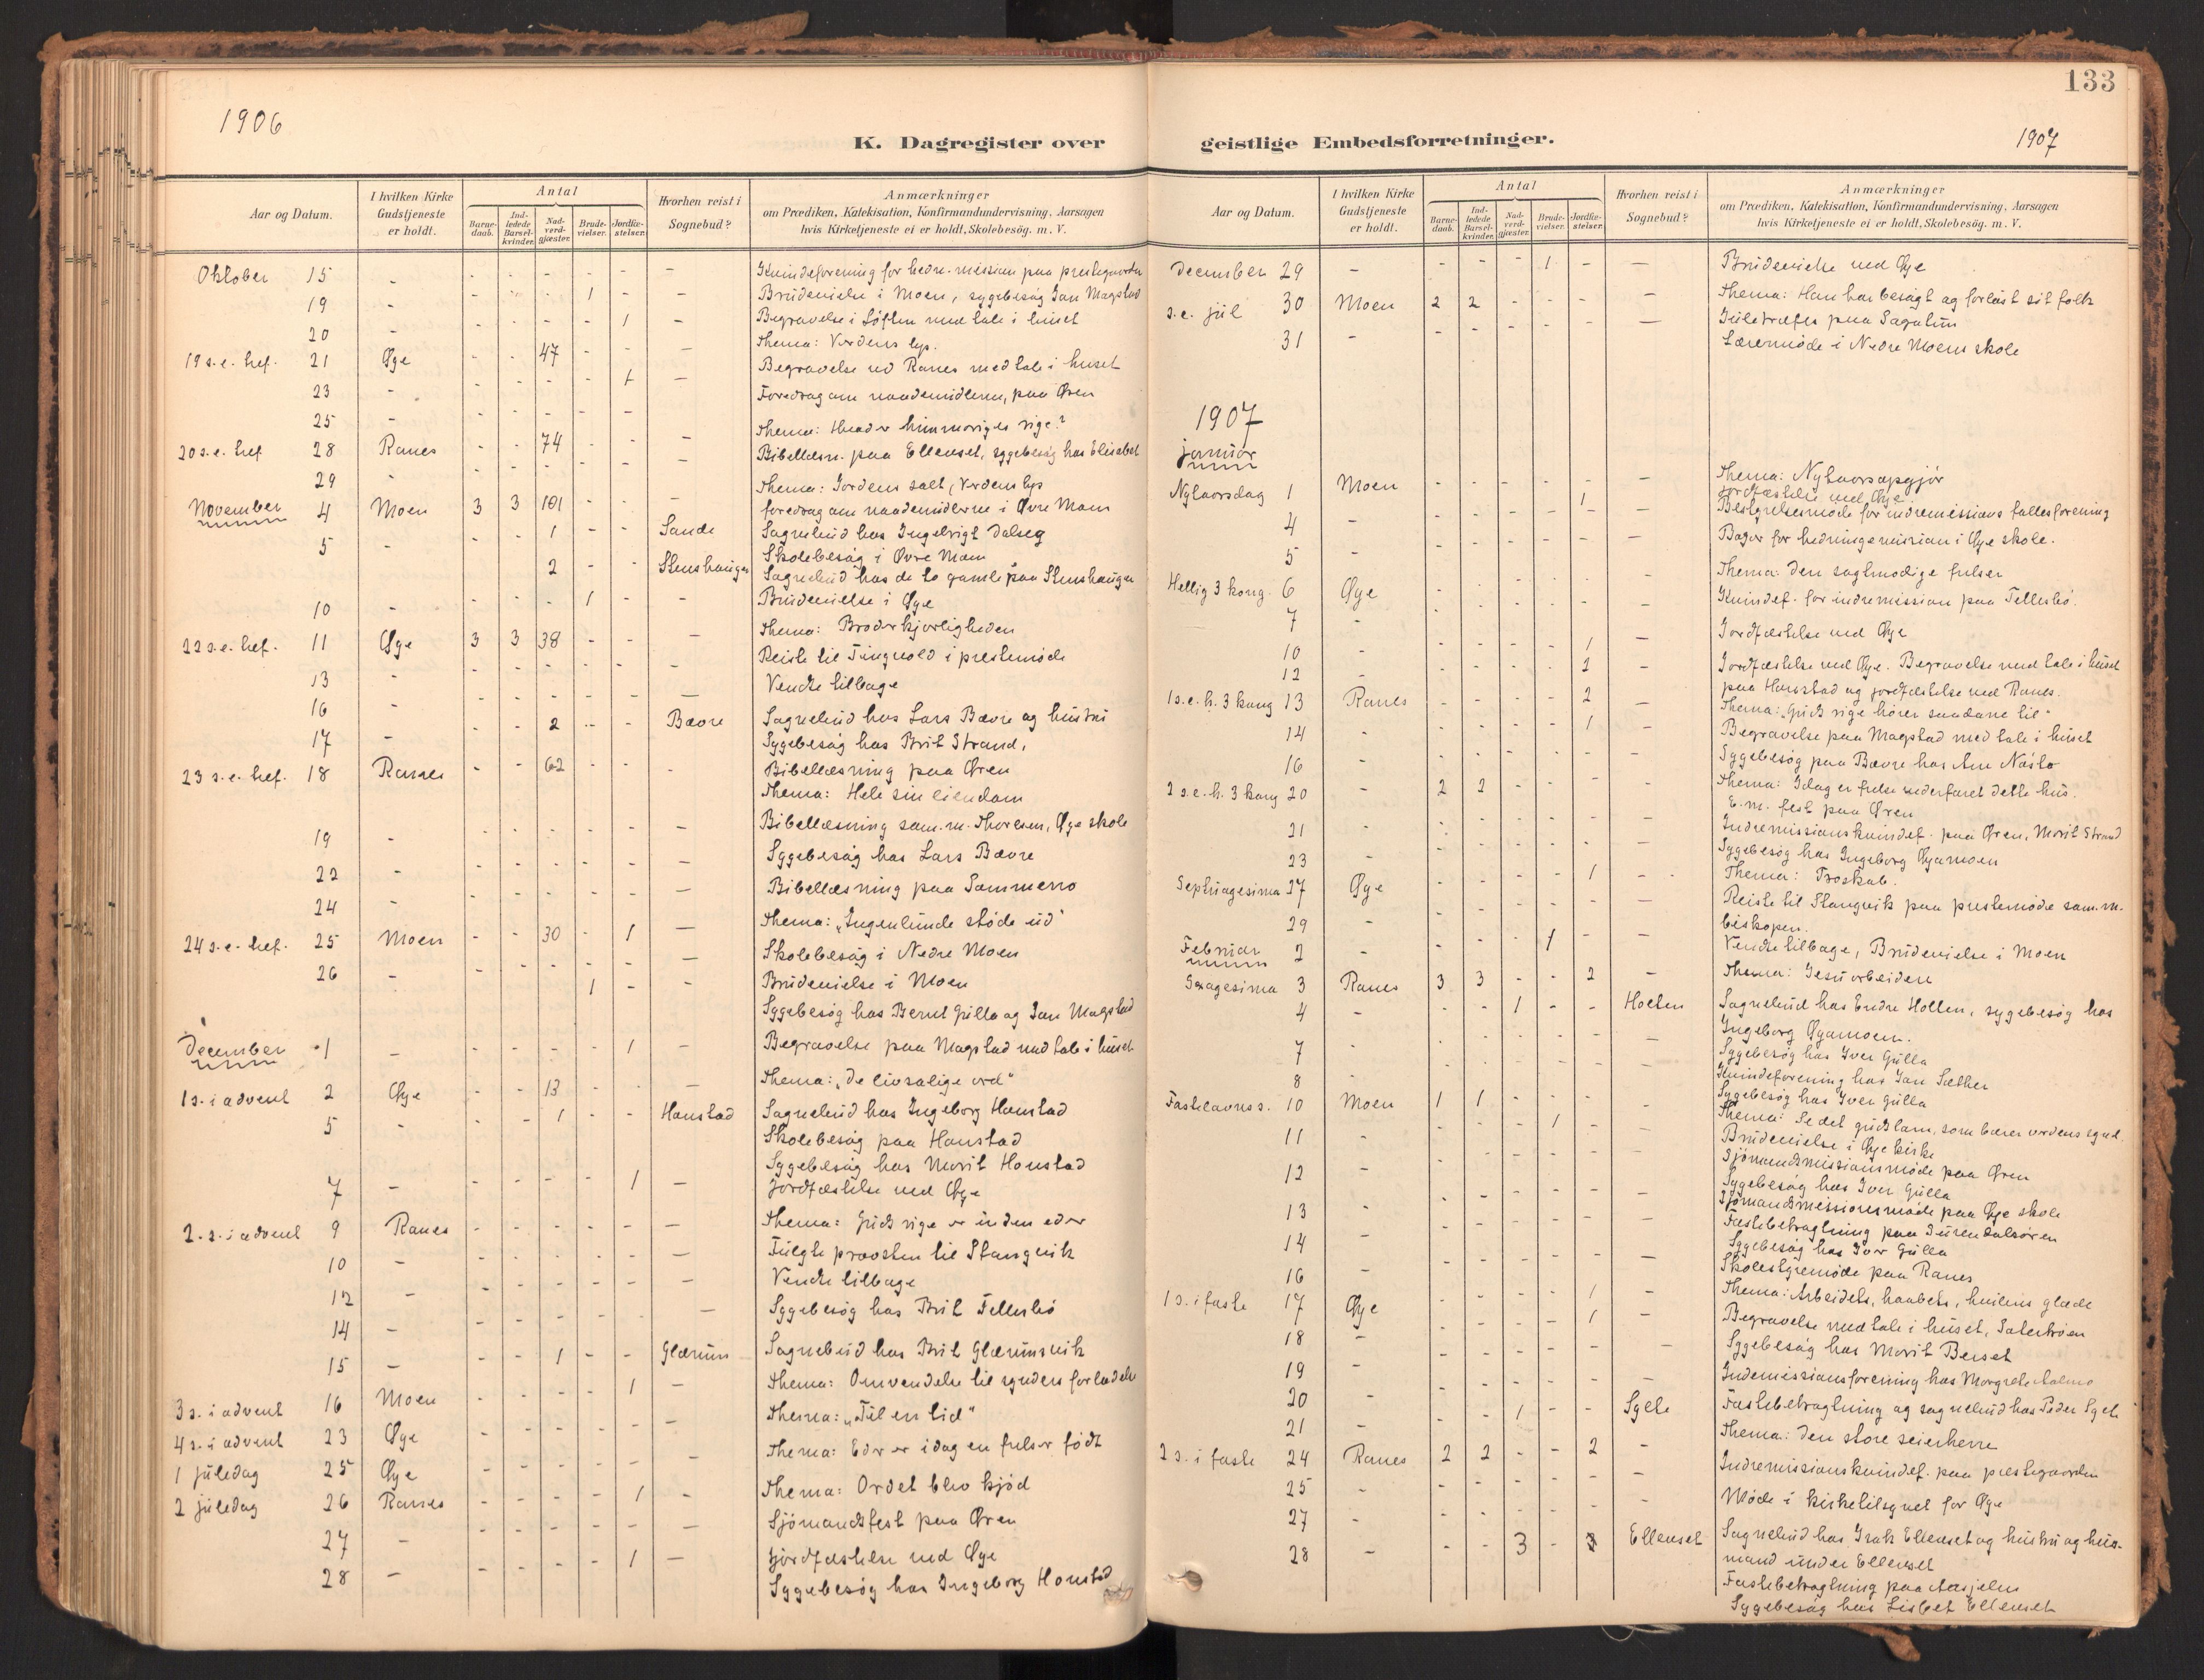 133
1906
K. Dagregister over geistlige Embedsforretninger.
1907
Aar og Datum. I hvilken Kirke Gudstjeneste er holdt. Antal Barne-daab. Ind-ledede Barsel-kvinder. Nad-verd-gjæster. Brude-vielser. Jordfæ-stelser. Hvorhen reist i Sognebud? Anmærkninger om Prædiken, Katekisation, Konfirmandundervisning, Aarsagen hvis Kirketjeneste ei er holdt, Skolebesög. m. V.
Oktober 15 - - - - - - - Kvindeforening for hedn. mission paa prestegaarden
19 - - - - 1 - - Brüdevielse i Moen, sygebesøg Jan Magstad
20 - - - - - 1 - Begravelse i Löften med tale i hüset
19 s.e. tref. 21 Øye - - 47 - - - Thema: Verdens lys.
23 - - - - - 1 - Begravelse ved Ranes med tale i hüset
25 - - - - - - - Foredrag om naademidlerne, paa Øren
20 s.e. tref 28 Ranes - - 74 - - - Thema: Hvad er himmeriges rige?
29 - - - - - - - Bibellæsn. paa Ellenset, sygebesøg hos Elisabet
November 4 Moen 3 3 101 - - - Thema: Jordens salt, Verdens lys
foredrag om naademidlerne i Øvre Moen
5 - - - 1 - - Sande Sognebud hos Ingebrigt Dalseg
Skolebesög i Øvre Moen
2 - - Stenshaugen Sognebud hos de to gamle paa Stenshaugen
10 - - - - 1 - - Brüdevielse i Øye
22 s.e. tref. 11 Øye 3 3 38 - - - Thema: Broderkjærligheden
13 - - - - - - - Reiste til Tingvold i prestemøde
16 - - - - - - - Vendte tilbage
17 - - - 2 - - Bævre Sognebud hos Lars Bævre og hüstrü
Sygebesøg hos Brit Strand,
23 s.e. tref. 18 Ranes - - 62 - - - Bibellæsning paa Øren
Thema: Hele sin eiendom
19 - - - - - - - Bibellæsning sam. m. Thoresen, Øye skole
22 - - - - - - - Sygebesøg hos Lars Bævre
24 - - - - - - - Bibellæsning paa Sommerro
24 s.e. tref. 25 Moen - - 30 - 1 - Thema: „Ingenlunde støde üd“
26 - - - - - - - Skolebesøg i Nedre Moen
1 - - Brüdevielse i Moen
Sygebesøg hos Bernt Gülla og Jan Magstad
December 1 - - - - - 1 - Begravelse paa Magstad med tale i hüset
1 s. i advent 2 Øye - - 13 - - - Thema: „De livsalige ord“
5 - - - 1 - - Hanstad Sognebud hos Ingeborg Hanstad
Skolebesøg paa Hanstad
Sygebesøg hos Marit Hanstad
7 - - - - - 1 - Jordfæstelse ved Øye
2. s. i advent 9 Ranes - - - - - - Thema: Güds rige er inden eder
10 - - - - - - - Fülgte provsten til Stangvik
12 - - - - - - - Vendte tilbage
14 - - - - - - - Sygebesøg hos Brit Tellesbö
15 - - - 1 - - Glærum Sognebud hos Brit Glærumsvik
3 s. i advent 16 Moen - - - - 1 - Thema: Omvendelse til synders forladelse
4 s. i advent 23 Øye - - - - - - Thema: „Til en tid“
1 jüledag 25 Øye - - - - - - Thema: Eder er idag en frelser født
2 jüledag 26 Ranes - - - - 1 - Thema: Ordet blev kjød
27 - - - - - - - Sjømandsfest paa Øren
28 - - - - - 1 - Jordfæstelse ved Øye
Sygebesøg hos Ingeborg Honstad
Aar og Datum. I hvilken Kirke Gudstjeneste er holdt. Antal Barne-daab. Ind-ledede Barsel-kvinder. Nad-verd-gjæster. Brude-vielser. Jordfæ-stelser. Hvorhen reist i Sognebud? Anmærkninger om Prædiken, Katekisation, Konfirmandundervisning, Aarsagen hvis Kirketjeneste ei er holdt, Skolebesög. m. V.
December 29 - - - - 1 - - Brüdevielse ved Øye
s.e. jül 30 Moen 2 2 - - - - Thema: Han har besøgt og forløst sit folk
Jületræfest paa Sagatün
31 - - - - - - - Lærermøde i Nedre Moens skole
1907
januar
Nytaarsdag 1 Moen - - - - 1 - Thema: Nytaarsopgjör
Jordfæstelse ved Øye
4 - - - - - - - Bestyrelsesmøde for indremissions fællesforening
5 - - - - - - - Bazar for hedningemission i Øye skole.
Hellig 3 kong. 6 Øye - - - - - - Thema: Den sagtmodige frelser
7 - - - - - - - Kvindef. for indremission paa Tellesbö.
10 - - - - - 1 - Jordfæstelse ved Øye
12 - - - - - 2 - Jordfæstelse ved Øye. Begravelse med tale i hüset
paa Hanstad og jordfæstelse ved Ranes.
1 s.e.h. 3 kong 13 Ranes - - - - 2 - Thema: „Güds rige hører saadanne til“
14 - - - - - 1 - Begravelse paa Magstad med tale i hüset
16 - - - - - - - Sygebesøg paa Bævre hos Ane
2 s.e.h. 3 kong 20 - 2 2 - - - - Thema: Idag er frelse vederfaret dette hus.
E.m. fest paa Øren
21 - - - - - - - Indremissionskvindef. paa Øren, Marit Strand
23 - - - - - - - Sygebesøg hos Ingeborg Øyamoen
Septuagesima 27 Øye - - - - 1 - Thema: Troskab.
29 - - - - - - - Reiste til Stangvik paa prestemøde sam. m.
biskopen.
Februar 2 - - - - 1 - - Vendte tilbage, Brüdevielse i Moen
Sexagesima 3 Ranes 3 3 - - 2 - Thema: Jesu arbeidere
4 - - - 1 - - Holten Sognebud hos Endre Holten, sygebesøg hos
Ingeborg Øyamoen.
7 - - - - - - - Sygebesøg hos Iver Gülla
8 - - - - - - - Kvindeforening hos Jan Sæther
Sygebesøg hos Iver Gülla
Fastelavns s. 10 Moen 1 1 - - - - Thema: Se det güds lam, som bærer verdens synd.
11 - - - - 1 - - Brüdevielse i Øye kirke
Sjømandsmissionsmøde paa Øren
12 - - - - - - - Sygebesøg hos Iver Gülla
Sjømandsmissionsmøde paa Øye skole
13 - - - - - - - Fastebetragtning paa Sürendalsøren
14 - - - - - - - Sygebesøg hos Iver Gülla
16 - - - - - - - Skolestyremøde paa Ranes
1 s. i faste 17 Øye - - - - 1 - Thema: Arbeidets, haabets, hvilens glæde
18 - - - - - 1 - Begravelse med tale i hüset, Sæterbøen
19 - - - - - - - Sygebesøg hos Marit Berset
20 - - - - - - - Indremissionsforening hos Margrete Aalmo
21 - - - 1 - - Sylte Fastebetragtning og sognebud hos Peder Sylte
2 s. i faste 24 Ranes 2 2 - - 2 - Thema: Den store seierherre
25 - - - - - - - Indremissionskvindef. paa prestegaarden
27 - - - - - - - Møde i kirketilsynet for Øye
28 - - - 3 - Ellenset Sognebud hos Isak Ellenset og hüstrü og hüs-
mand ünder Ellenset
Fastebetragtning paa Aasjelen
Sygebesøg hos Lisbet Ellenset